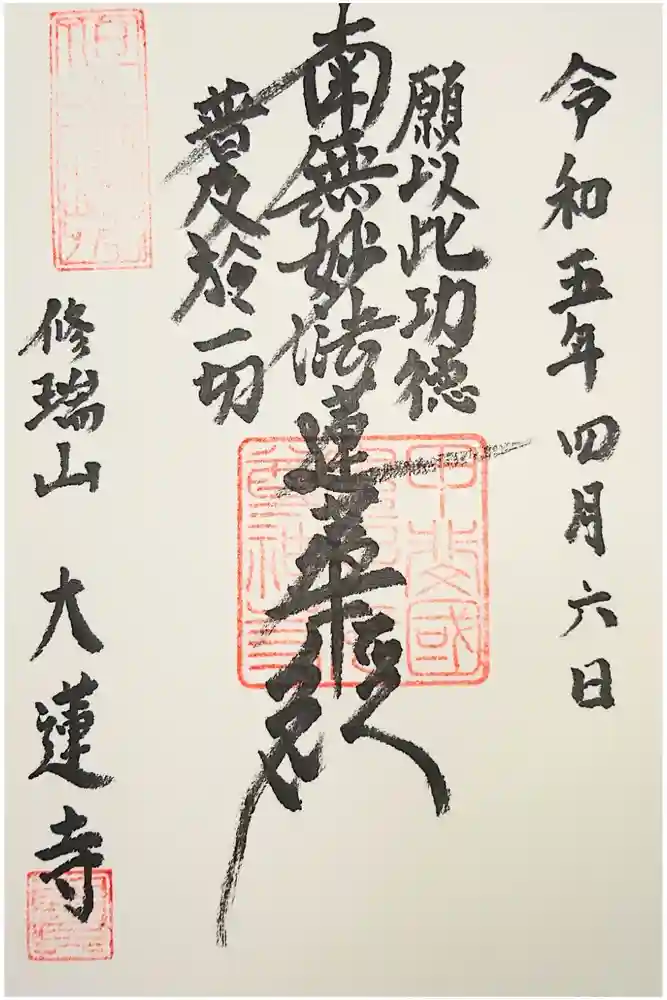 令和五年四月六日
願以此功徳
南無妙法蓮華経
普及於一切
修瑞山 大蓮寺